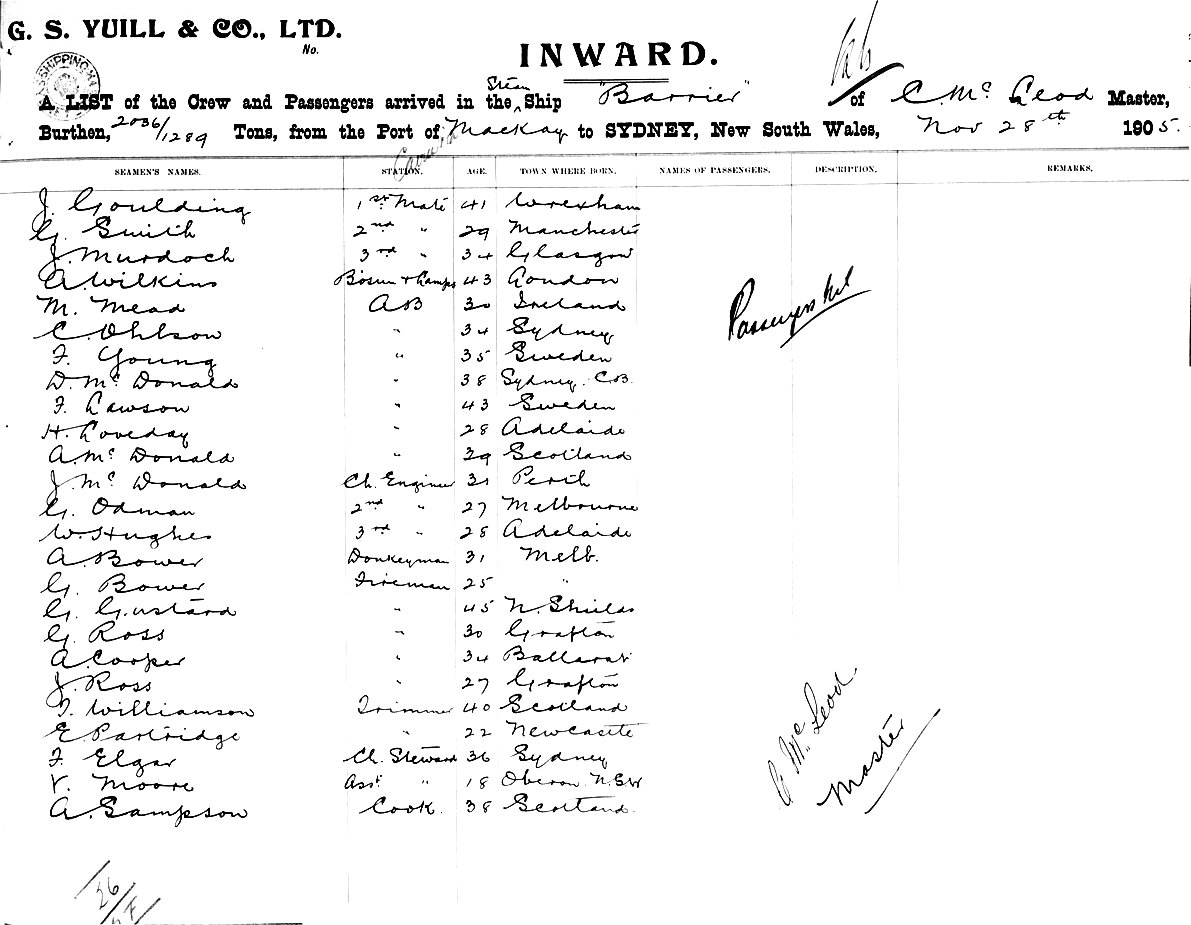 G. S. YUILL & CO., LTD.
No.
INWARD.
SHIPPING
A LIST of the Crew and Passengers arrived in the Steam Ship "Barrier" of C. Mc Leod Master,
Burthen, 2036/1289 Tons, from the Port of Mackay to SYDNEY, New South Wales, Nov 28th 1905.
SEAMEN'S NAMES. STATION. AGE. TOWN WHERE BORN. NAMES OF PASSENGERS. DESCRIPTION. REMARKS.
J. Goulding 1st Mate 41 Wrexham
G. Smith 2nd " 29 Manchester
J. Murdoch 3rd " 34 Glasgow
A Wilkins Bosun + Lamps 43 London
M. Mead AB 30 Ireland
C. Ohlson " 34 Sydney
F. Young " 35 Sweden
D. Mc Donald " 38 Sydney. C.B.
F. Lawson " 43 Sweden
H. Loveday " 28 Adelaide
A. Mc Donald " 39 Scotland
J. Mc Donald Ch. Engineer 31 Perth
G. Odman 2nd " 27 Melbourne
W. Hughes 3rd " 28 Adelaide
A Bower Donkeyman 31 Melb.
G. Bower Fireman 25 "
G. Gustard " 45 N. Shields
G. Ross " 30 Grafton
A. Cooper " 34 Ballarat
J. Ross " 27 Grafton
T. Williamson Trimmer 40 Scotland
E Partridge " 22 Newcastle
F. Elgar Ch. Steward 36 Sydney
V. Moore Asst. " 18 Oberon N.S.W
A. Sampson Cook. 38 Scotland.
Passengers Nil
C. Mc Leod
Master